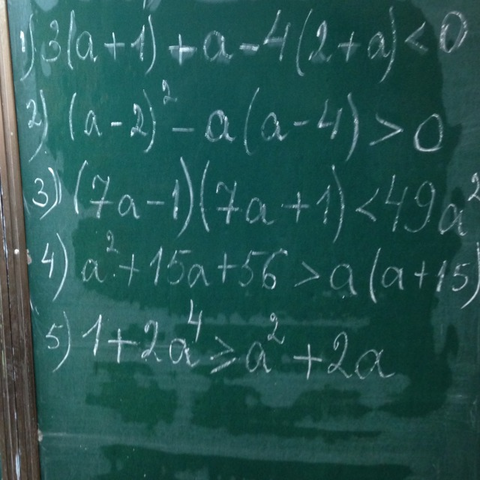 1) 3(a+1)+a-4(2+a)<0
2) (a-2)²-a(a-4)>0
3) (7a-1)(7a+1)<49a²
4) a²+15a+56>a(a+15)
5) 1+2a⁴≥a²+2a